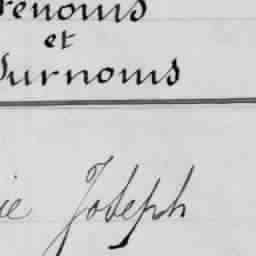 rénoms
et
Surnoms
ie Joseph